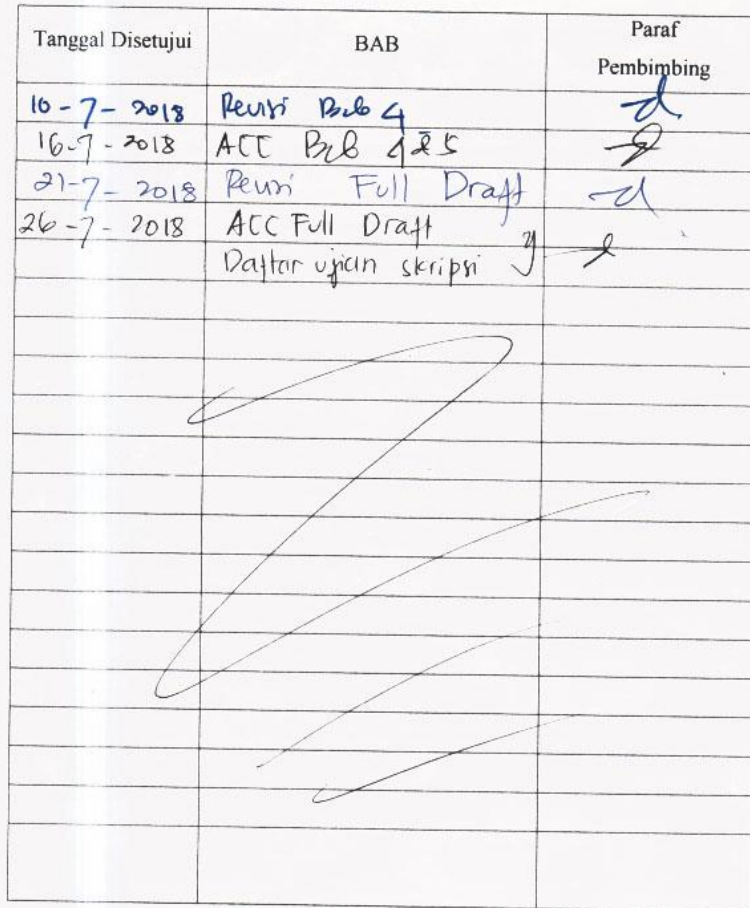 Tanggal Disetujui
BAB
Paraf
Pembimbing
10-7-2018 Revisi Bab 4
16-7-2018 ACC Bab 4 & 5
21-7-2018 Revisi Full Draft
26-7-2018 ACC Full Draft
Daftar ujian skripsi